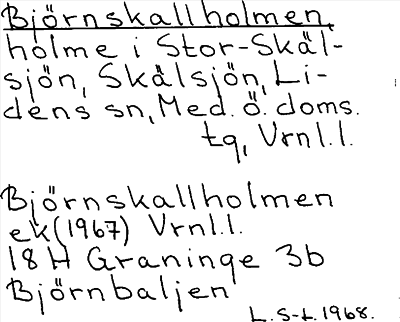 Björnskallholmen,
holme i Stor-Skäl-
sjön, Skälsjön, Li-
dens sn, Med. ö. doms.
tq, Vrnl.l.
Björnskallholmen
ek(1967) Vrnl.l.
18H Graninge 3b
Björnbaljen
L. S-L. 1968.